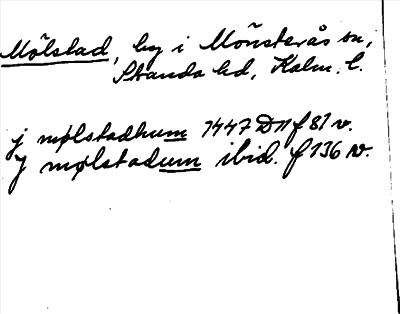 Mölstad, by i Mönsterås sn,
Stranda hd, Kalm. l.
j mølstadhum 1447 D11 f 81 v.
J mølstadum ibid. f 136 v.